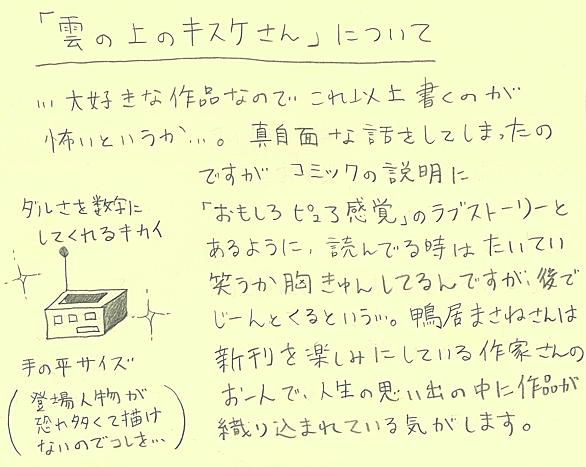 「雲の上のキスケさん」について
… 大好きな作品なので これ以上 書くのが
怖いというか…。真自面な話をしてしまったの
ですが コミックの説明に
「おもしろ ピュア感覚」のラブストーリーと
あるように、読んでる時は たいてい
笑うか胸きゅんしてるんですが、後で
じーんとくるという…。鴨居まさねさんは
新刊を楽しみにしている作家さんの
お一人で、人生の思い出の中に作品が
織り込まれている気がします。
ダルさを数字に
してくれるキカイ
手の平サイズ
(登場人物が
恐れ多くて描け
ないのでコレを…)